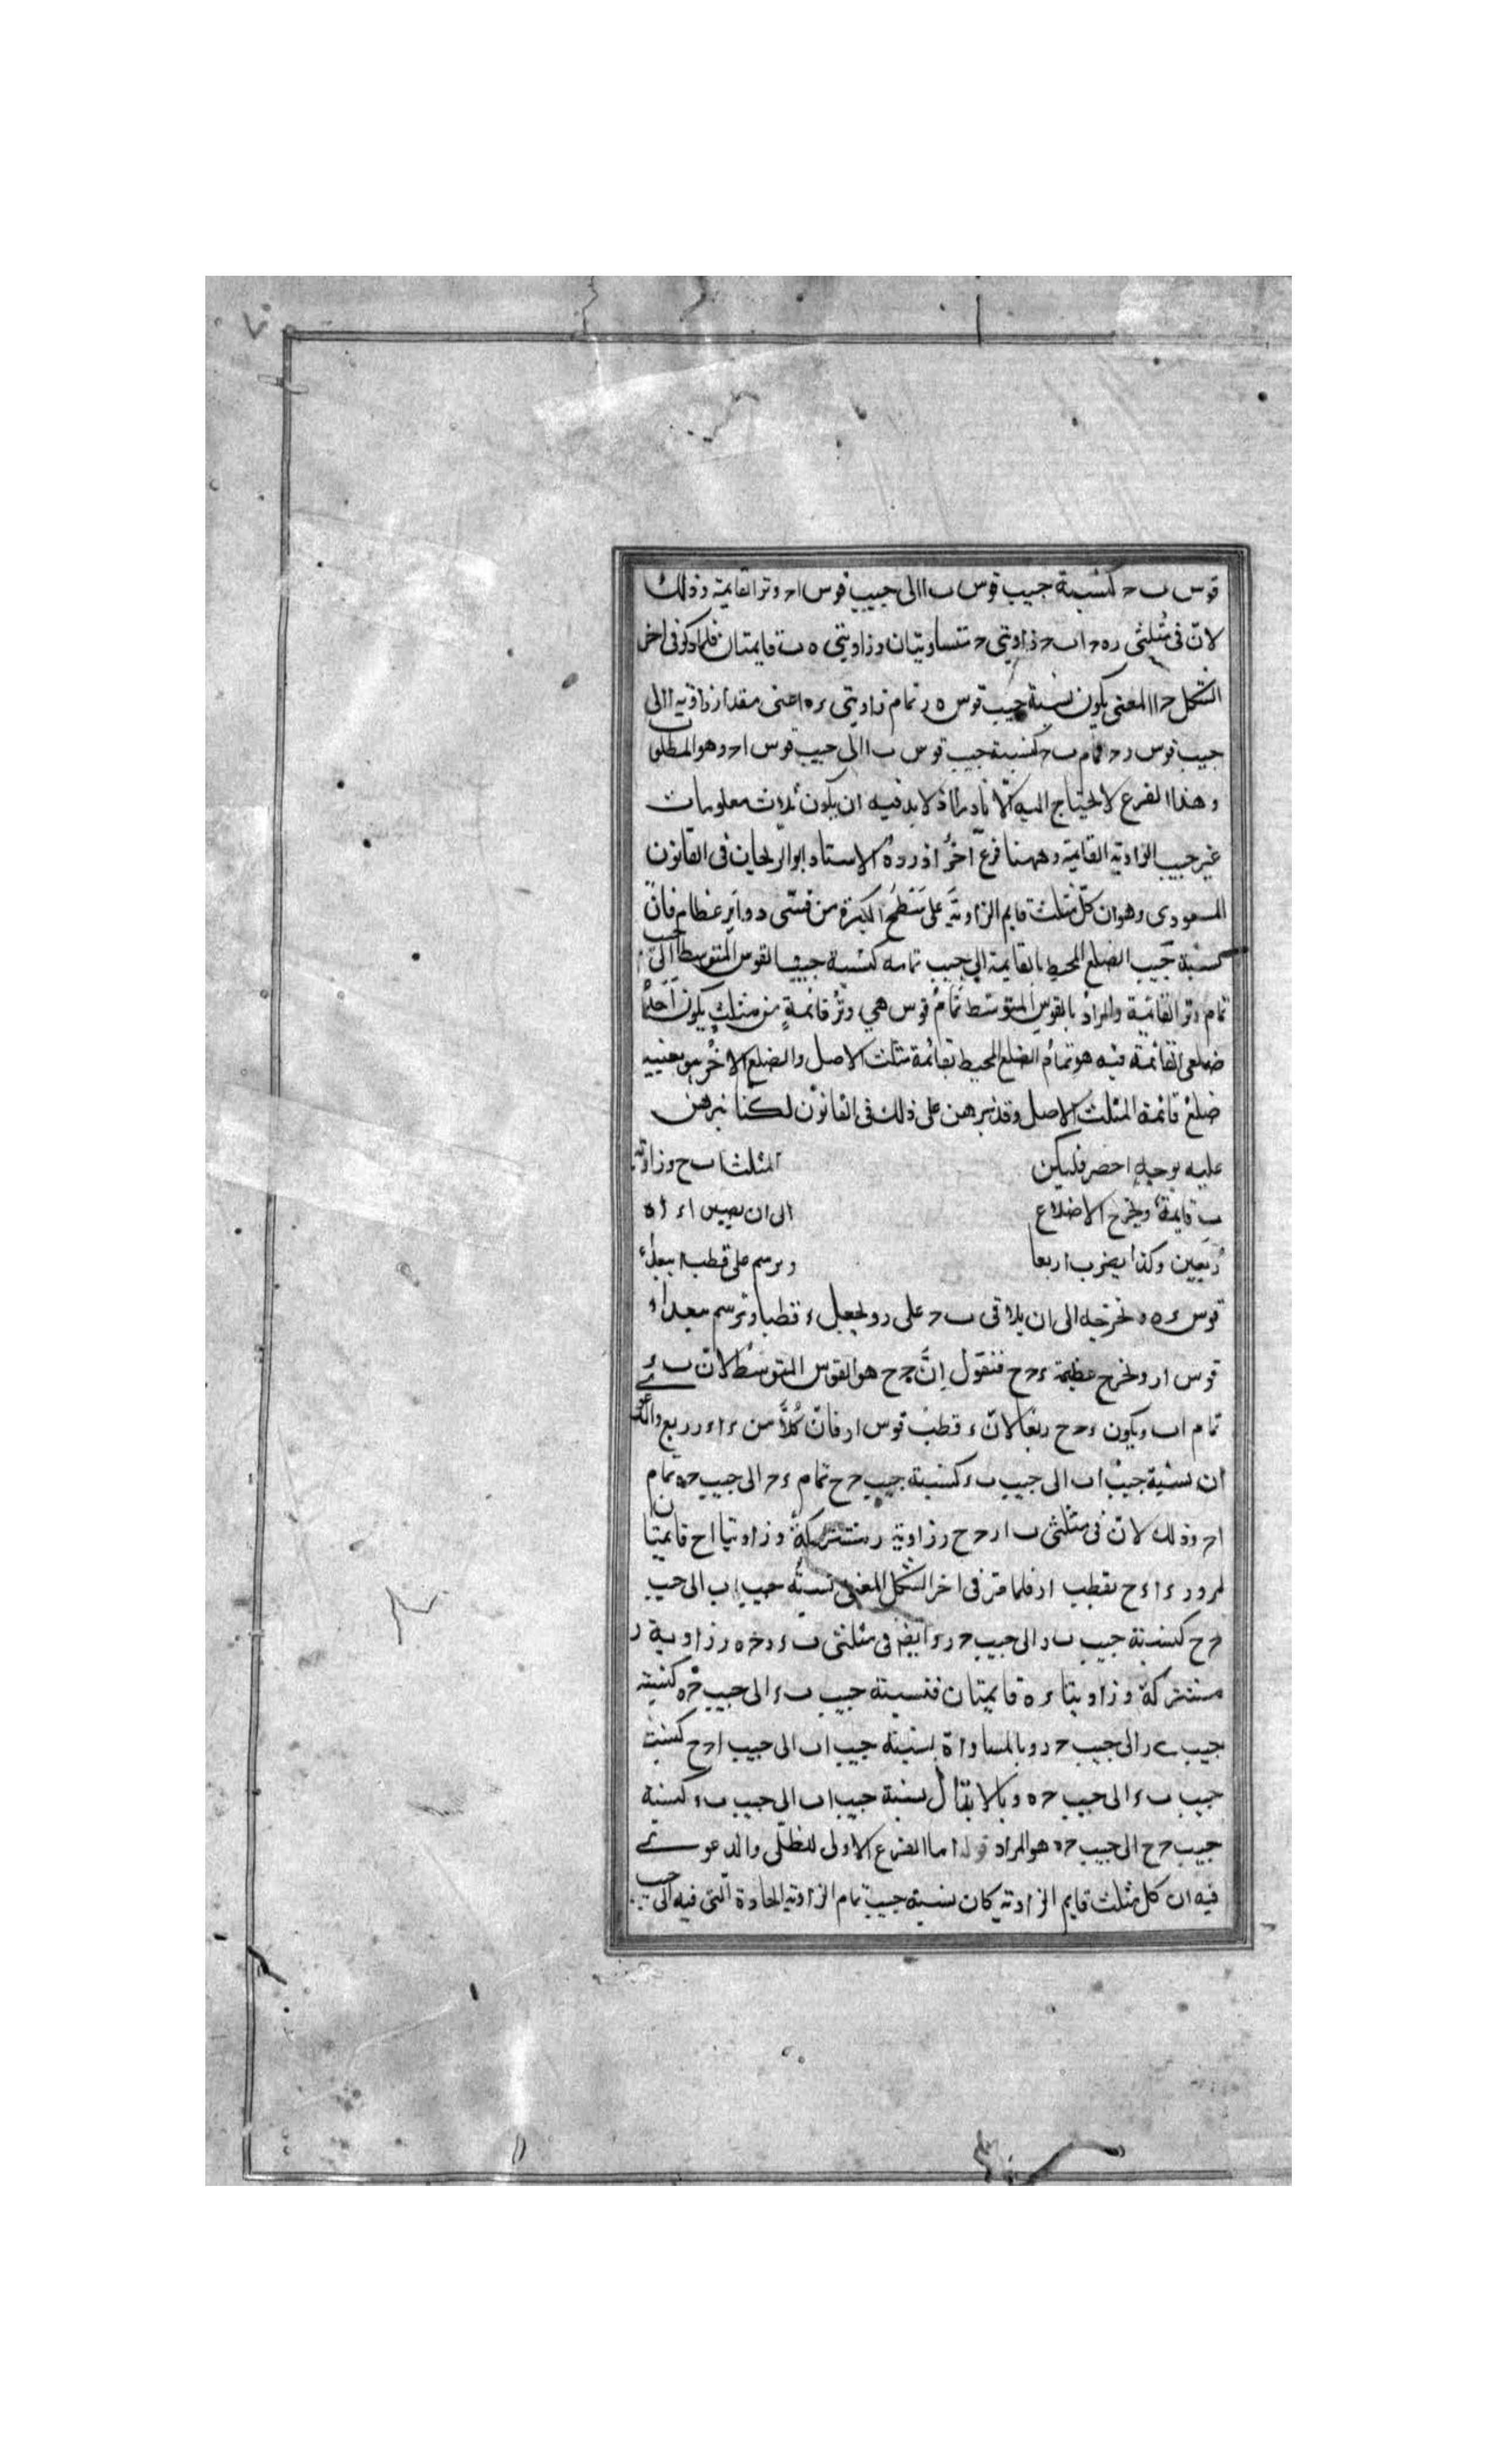 قوس ب ح كنسبة جيب قوس ب ا الى جيب قوس ا ح وتر القايمة وذلك
لان فى مثلثى ره ح اب ح زاويتى ح متساويتان وزاويتى ه ب قايمتان فلما ذكر فى اخر
الشكل المغنى يكون نسبة جيب قوس ه ر تمام زاويتى ء ه اعنى مقدار زاوية ا الى
جيب قوس ر ح تمام ب ح كنسبة جيب قوس ب ا الى جيب قوس ا ح وهو المطلوب
وهذا الفرع لا يحتاج اليه الا نادرا اذ لا بد فيه ان يكون ثلاث معلومات
غير جيب الزاوية القايمة وههنا فرع اخر اورده الاستاد ابو الريحان فى القانون
المسعودى وهو ان كل مثلث قايم الزاوية على سطح الكرة من قسى دواير عظام فان
نسبة جيب الضلع المحيط بالقايمة الى جيب تمامه كنسبة جيب القوس المتوسط الى جيب
تمام وتر القائمة والمراد بالقوس المتوسط تمام قوس هى وتر قائمة من مثلث يكون احد
ضلعى القائمة فيه هو تمام الضلع المحيط بقائمة مثلث الاصل والضلع الاخر هو بعينيه
ضلع قائمة المثلث الاصل وقد برهن على ذلك فى القانون لكنا نبرهن
عليه بوجه اخصر فليكن المثلث اب ح وزاوية
ب قايمة ونخرج الاضلاع الى ان يصير اء اه
ربعين وكذا يضرب اربعا ونرسم على قطب ا ببعد اء
قوس ء ه ونخرجه الى ان يلاقى ب ح على ر ونجعل ء قطبا ونرسم ببعد اء
قوس ار ونخرج عظيمة ء ح ح فنقول ان ح ح هو القوس المتوسط لان ب ء
تمام اب ويكون ء ح ح ربعا لان ء قطب قوس ار فان كلا من ء ا ء ر ربع والدعوى
ان نسبة جيب اب الى جيب ب ء كنسبة جيب ح ح تمام ء ح الى جيب ح ه تمام
ا ح وذلك لان فى مثلثى ب ا ر ح ح ر زاوية ر مشتركة وزاويتا ا ح قايمتان
لمرور ء ا ء ح بقطب ار فلما مر فى اخر الشكل المغنى نسبة جيب اب الى جيب
ح ح كنسبة جيب ب ر الى جيب ح ر وايضا فى مثلثى ب ء ر ح ه ر زاوية ر
مشتركة وزاويتا ء ه قايمتان فنسبة جيب ب ء الى جيب ح ه كنسبة
جيب ب ر الى جيب ح ر وبالمساواة نسبة جيب اب الى جيب ا ح ح كنسبة
جيب ب ء الى جيب ح ه وبالابدال نسبة جيب اب الى جيب ب ء كنسبة
جيب ح ح الى جيب ح ه هو المراد قوله اما الفرع الاول للظلى والدعوى
فيه ان كل مثلث قايم الزاوية كان نسبة جيب تمام الزاوية الحادة التى فيه الى جيب